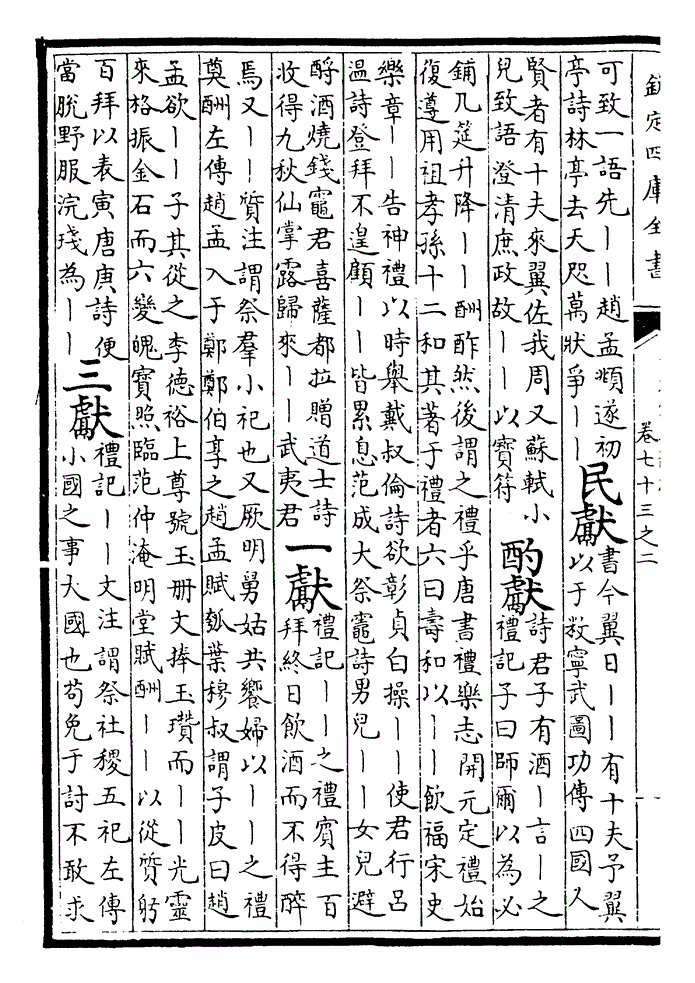 欽定四庫全書
卷七十三之二
可致一語先丨丨趙孟頫遂初
亭詩林亭去天咫萬狀爭丨丨
民獻
書今翼日丨丨有十夫予翼
以于敉寧武圖功傳四國人
賢者有十夫來翼佐我周又蘇軾小
兒致語澄清庶政故丨丨以寶符
酌獻
詩君子有酒丨言丨之
禮記子曰師爾以為必
鋪几筵升降丨丨酬酢然後謂之禮乎唐書禮樂志開元定禮始
復遵用祖孝孫十二和其著于禮者六曰壽和以丨丨飲福宋史
樂章丨丨告神禮以時舉戴叔倫詩欲彰貞白操丨丨使君行呂
温詩登拜不遑顧丨丨皆累息范成大祭竈詩男兒丨丨女兒避
酹酒燒錢竈君喜薩都拉贈道士詩
收得九秋仙掌露歸來丨丨武夷君
一獻
禮記丨丨之禮賓主百
拜終日飲酒而不得醉
焉又丨丨質注謂祭羣小祀也又厥明舅姑共饗婦以丨丨之禮
奠酬左傳趙孟入于鄭鄭伯享之趙孟賦瓠葉穆叔謂子皮曰趙
孟欲丨丨子其從之李德裕上尊號玉册文捧玉瓚而丨丨光靈
來格振金石而六變魄寶照臨范仲淹明堂賦酬丨丨以從質躬
百拜以表寅唐庚詩便
當脫野服浣琖為丨丨
三獻
禮記丨丨文注謂祭社稷五祀左傳
小國之事大國也苟免于討不敢求